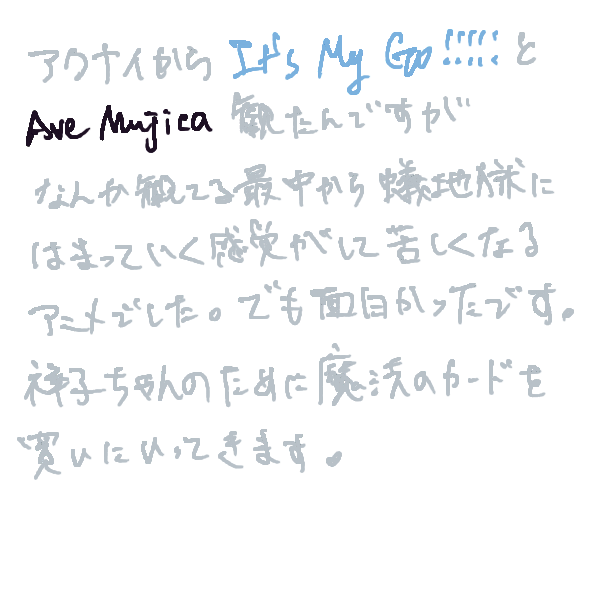 アクナイから It's My Go!!!!! と
Ave Mujica 観たんですが
なんか観てる最中から 蟻地獄に
はまっていく感覚がして苦しくなる
アニメでした。でも面白かったです。
祥子ちゃんのために魔法のカードを
買いにいってきます。